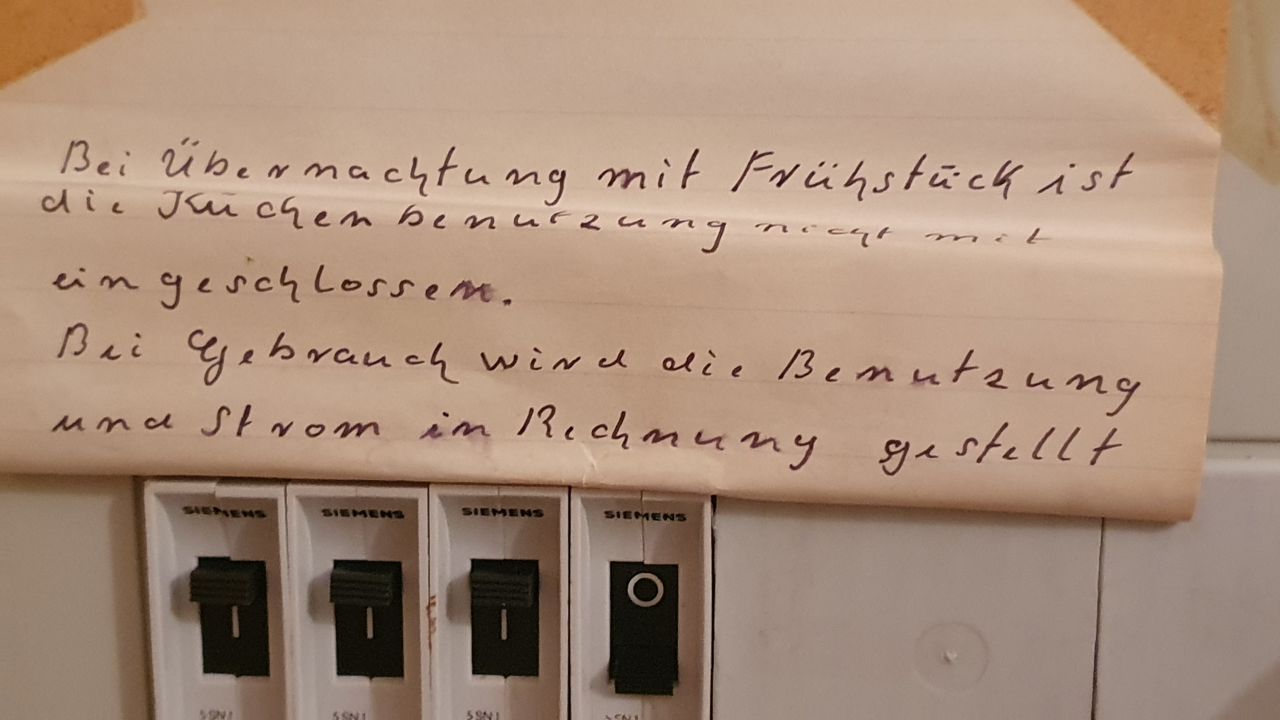 Bei Übernachtung mit Frühstück ist
die Küchenbenutzung nicht mit
eingeschlossen.
Bei Gebrauch wird die Benutzung
und Strom in Rechnung gestellt
SIEMENS SIEMENS SIEMENS SIEMENS
I I I O
5SN1 5SN1 5SN1 5SN1